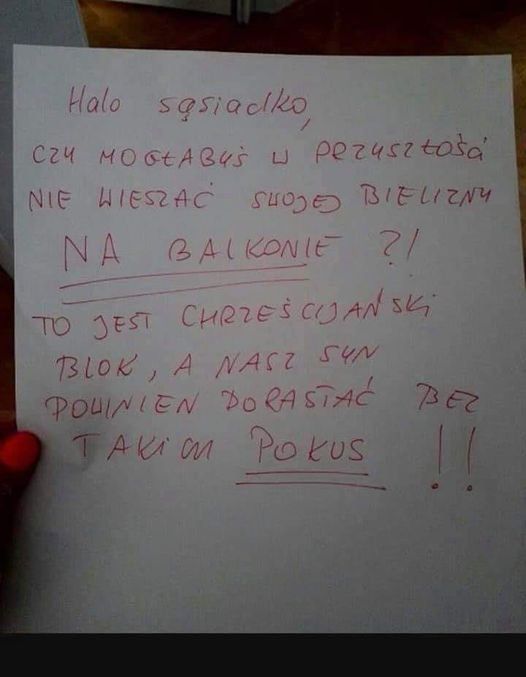 Halo sąsiadko,
CZY MOGŁABYŚ W PRZYSZŁOŚĆ
NIE WIESZAĆ SWOJEJ BIELIZNY
NA BALKONIE ?!
TO JEST CHRZEŚCIJAŃSKI
BLOK, A NASZ SYN
POWINIEN DORASTAĆ BEZ
TAKICH POKUS !!